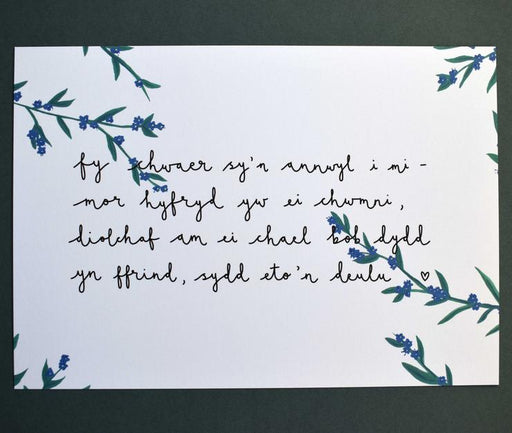 fy chwaer sy'n annwyl i mi -
mor hyfryd yw ei chwmni,
diolchaf am ei chael bob dydd
yn ffrind, sydd eto'n deulu ♡